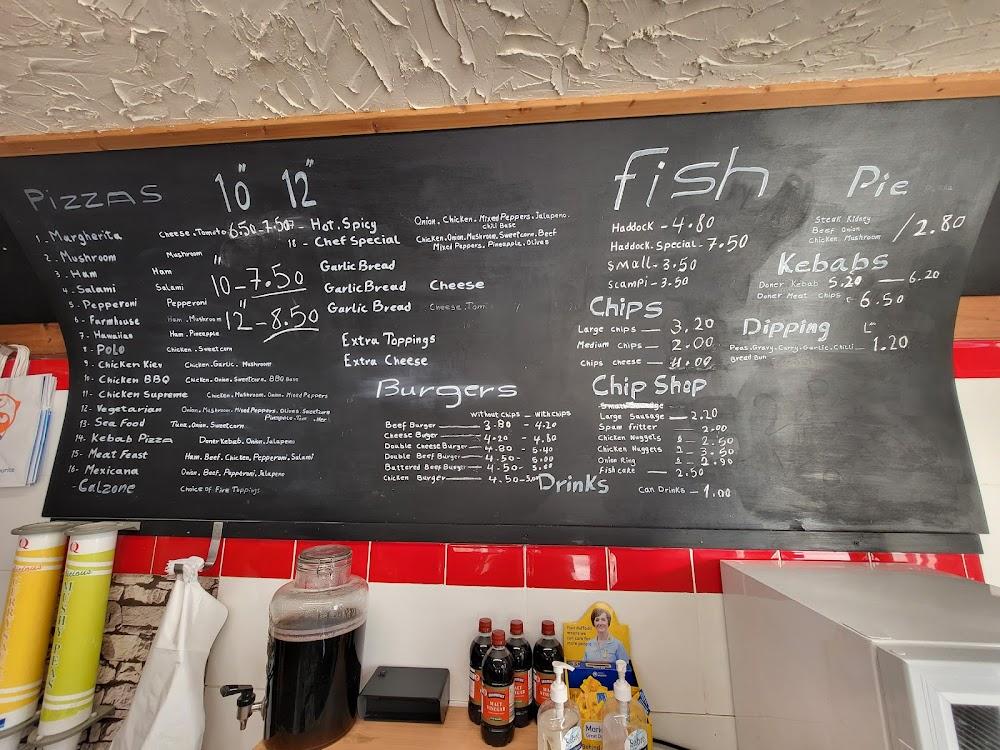 PIZZAS 10" 12"
1. Margherita Cheese.Tomato 6.50-7.50
2. Mushroom Mushroom
3. Ham Ham
4. Salami Salami
5. Pepperoni Pepperoni
6. Farmhouse Ham.Mushroom
7. Hawaiian Ham.Pineapple
8. POLO Chicken.Sweetcorn
9. Chicken Kiev Chicken.Garlic.Mushroom
10- Chicken BBQ Chicken.Onion.Sweetcorn.BBQ Base
11- Chicken Supreme Chicken.Mushroom.Onion.Mixed Peppers
12- Vegetarian Onion.Mushroom.Mixed Peppers.Olives.Sweetcorn
13- Sea Food Tuna.Onion.Sweetcorn
14- Kebab Pizza Doner Kebab.Onion.Jalapeno
15- Meat Feast Ham.Beef.Chicken.Pepperoni.Salami
16- Mexicana Onion.Beef.Pepperoni.Jalapeno
-Calzone Choice of Five Toppings
10"-7.50
12"-8.50
17- Hot.Spicy Onion.Chicken.Mixed Peppers.Jalapeno.
chili Base
18- Chef Special Chicken.Onion.Mushroom.Sweetcorn.Beef
Mixed Peppers.Pineapple.Olives
Garlic Bread
Garlic Bread Cheese
Garlic Bread Cheese.Tom
Extra Toppings
Extra Cheese
Burgers
without chips - with chips
Beef Burger 3.80 - 4.20
Cheese Buger 4.20 - 4.80
Double Cheese Burger 4.80 - 5.40
Double Beef Burger 4.50 - 5.00
Battered Beef Burger 4.50- 5.00
Chicken Burger 4.50-5.00
fish
Haddock - 4.80
Haddock.Special - 7.50
small - 3.50
scampi - 3.50
Chips
Large chips — 3.20
Medium chips — 2.00
Chips cheese — 4.00
Chip Shop
Large Sausage — 2.20
Spam fritter — 2.00
Chicken Nuggets 2.50
Chicken Nuggets 3.50
Onion Ring 2.90
Fishcake — 2.50
Drinks
Can Drinks - 1.00
Pie
Steak Kidney
Beef Onion
Chicken Mushroom
/2.80
Kebabs
Doner Kebab 5.20 — 6.20
Doner Meat Chips 6.50
Dipping
Peas.Gravy.Curry.Garlic.Chilli 1.20
Bread Bun
MALT
VINEGAR